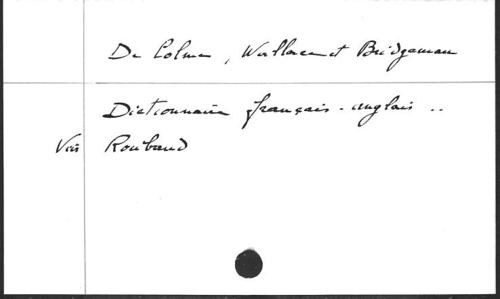 De Colme, Wallace et Bridgeman
Dictionnaire français-anglais ..
Voir Roubaud